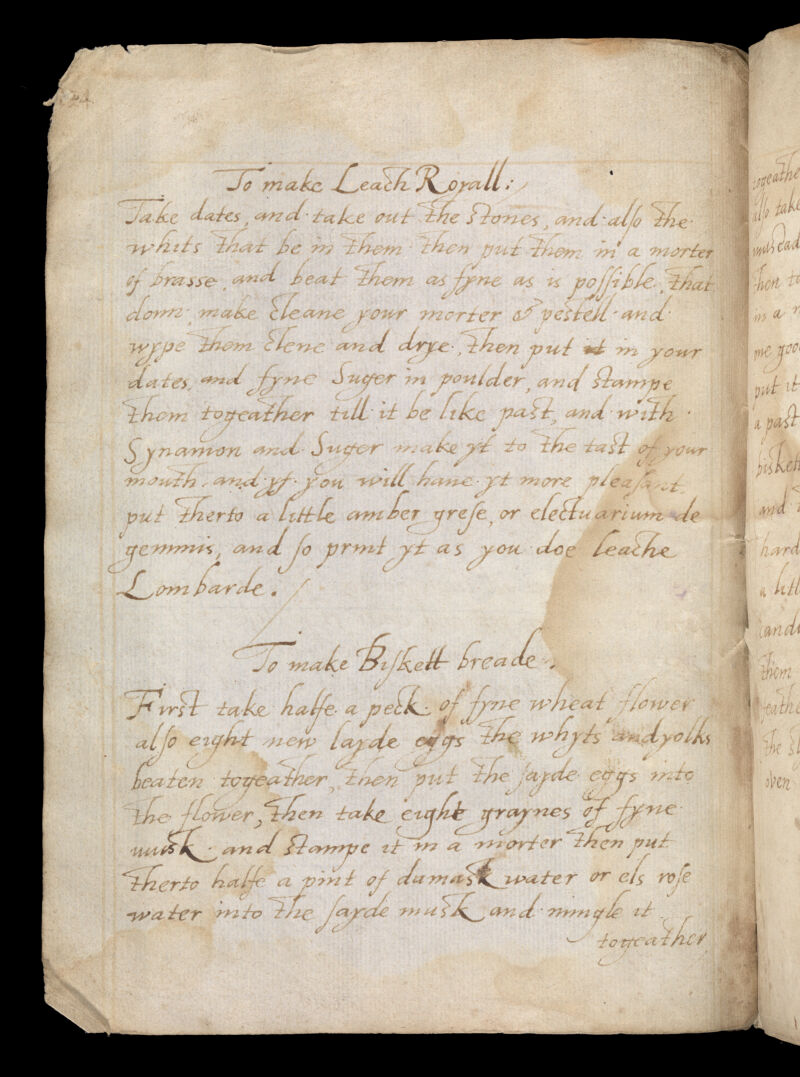 To make Leach Royall:
Take dates, and take out the stones, and also the
whits that be in them then put them in a morter
of brasse, and beat them as fyne as is possible, that
donn make cleane your morter & pestell and
wype them clene and drye, then put it in your
dates, and fyne Suger in poulder, and stampe
them togeather till it be like past, and with
Synamon and Suger make yt to the tast of your
mouth, and yf you will haue yt more pleasant
put therto a little amber grese, or electuarium de
gemmis, and so prnt yt as you doe leache
Lombarde.
To make Biskett breade.
First take halfe a peck of fyne wheat flower
also eight new layde eggs the whyts and yolks
beaten togeather, then put the sayde eggs into
the flower, then take eight graynes of fyne
musk and stampe it in a morter then put
therto halfe a pint of damask water or els rose
water into the sayde musk and mingle it
togeather
togeathe
also take
muscad
then to
in a
me good
put it
a past
biskett
and
hard
a littl
cand
them
feathe
the
oven